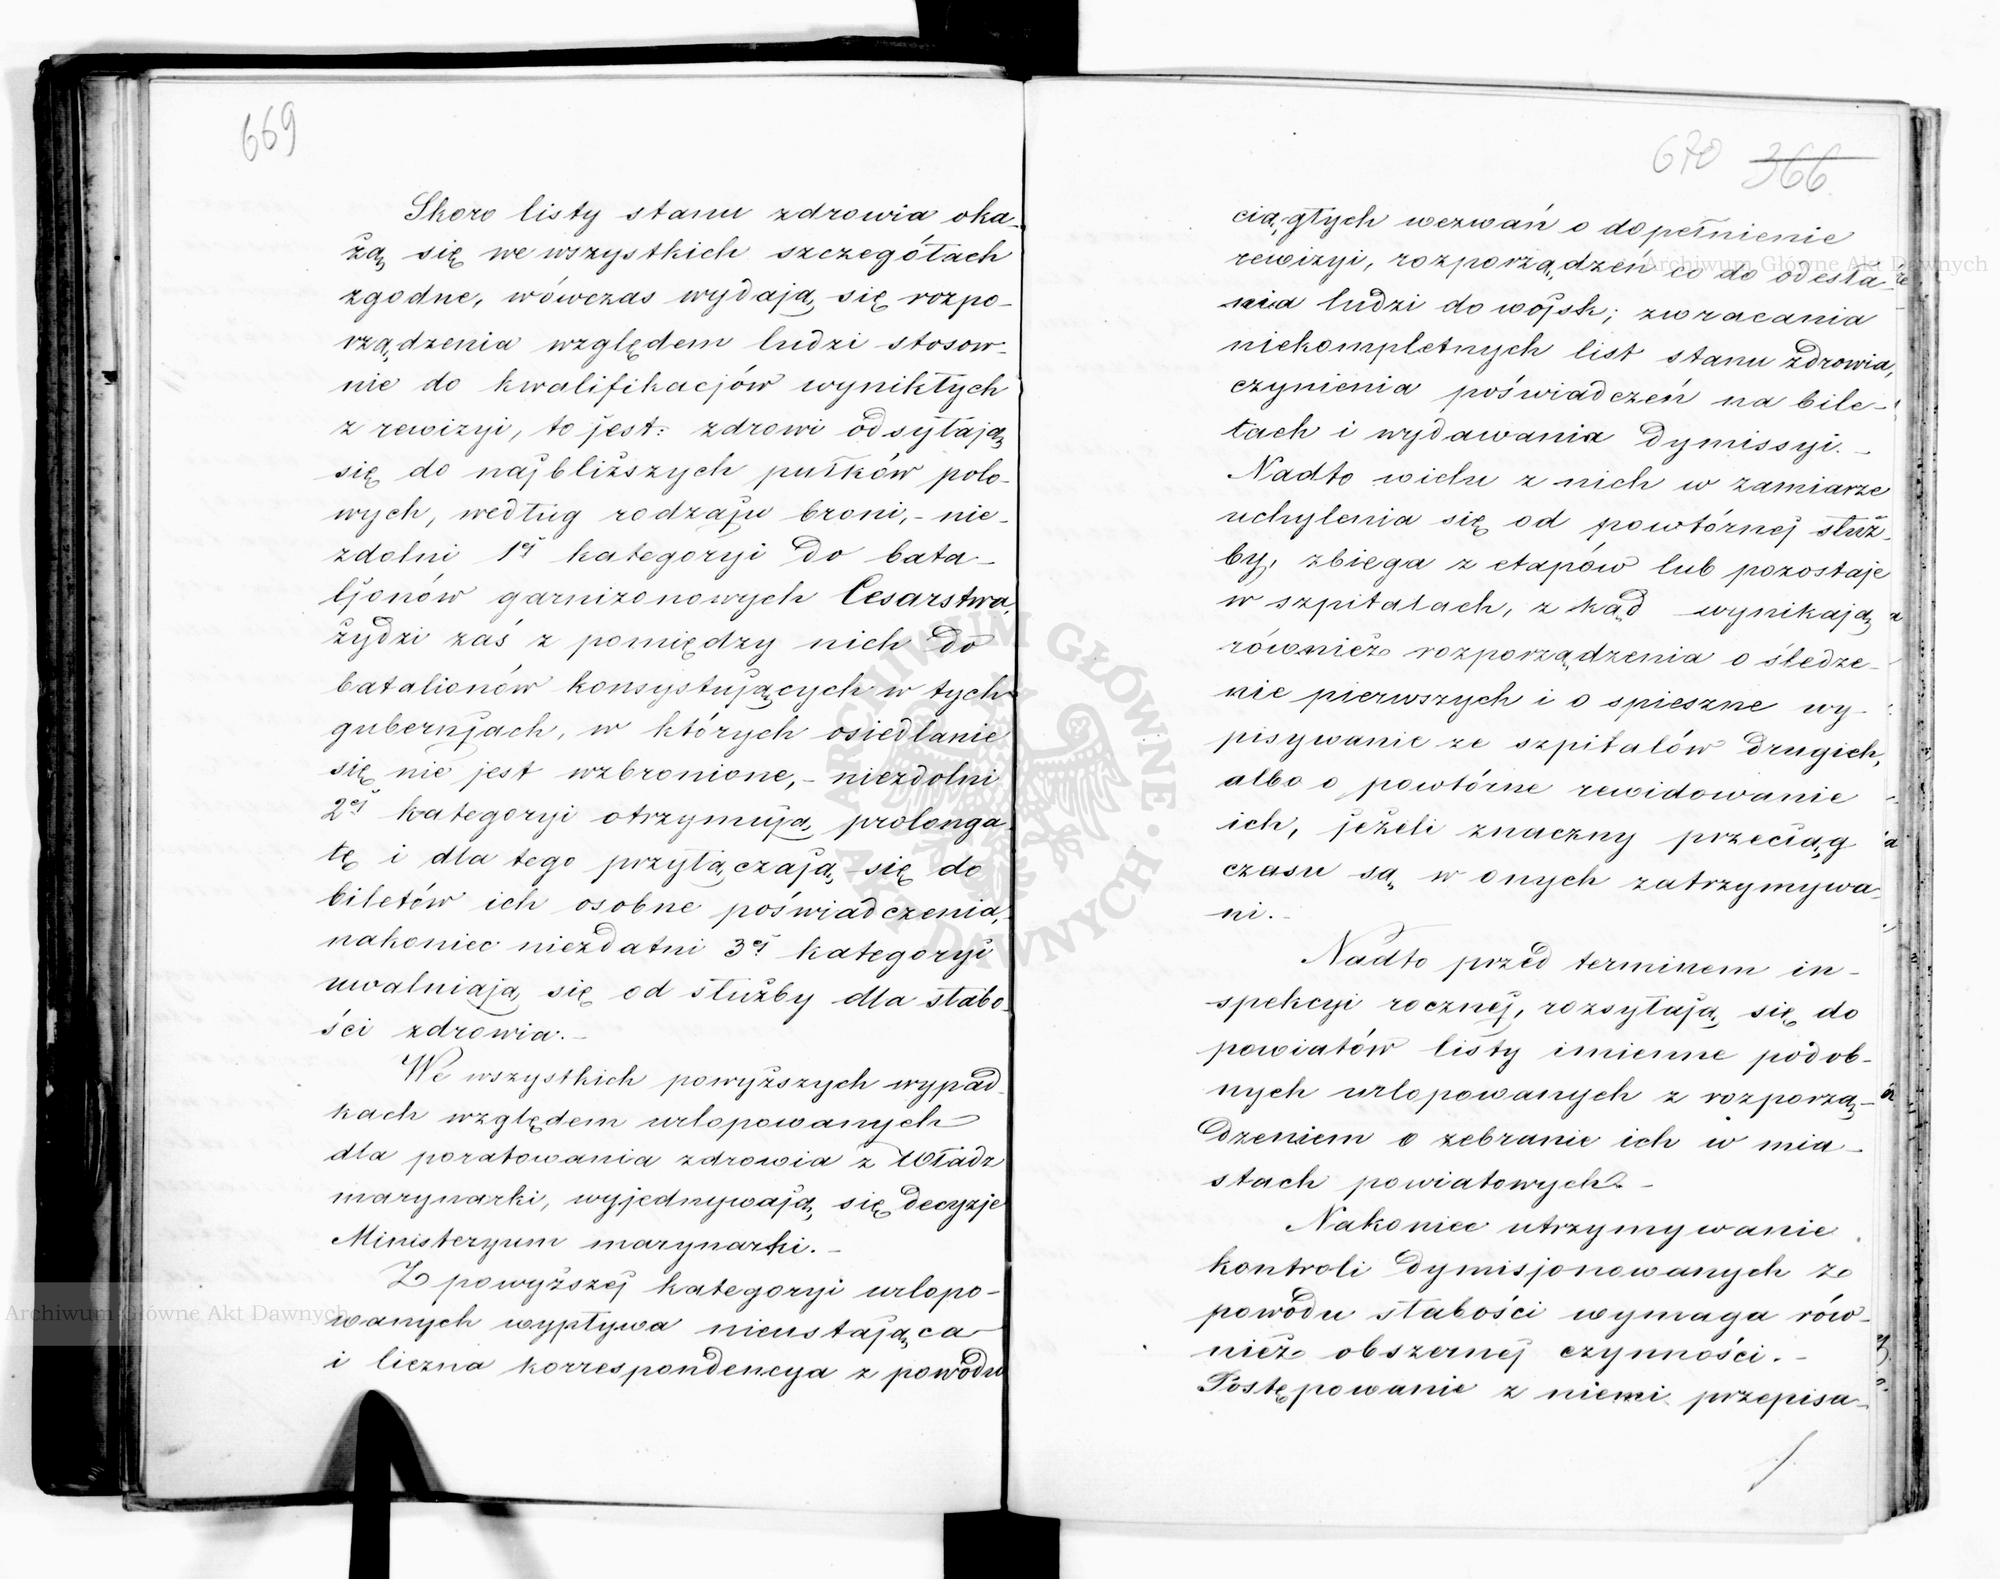 669
Skoro listy stanu zdrowia oka-
żą się we wszystkich szczegółach
zgodne, wówczas wydają się rozpo-
rządzenia względem ludzi stosow-
nie do kwalifikacjów wynikłych
z rewizyi, to jest: zdrowi odsyłają
się do najbliższych pułków polo-
wych, według rodzaju broni, - nie-
zdolni 1ej kategoryi do bata-
ljonów garnizonowych Cesarstwa,
żydzi zaś z pomiędzy nich do
batalionów konsystujących w tych
gubernjach, w których osiedlanie
się nie jest wzbronione, - niezdolni
2ej kategoryi otrzymują prolonga-
tę i dla tego przyłączają się do
biletów ich osobne poświadczenia,
nakoniec niezdatni 3ej kategoryi
uwalniają się od służby dla słabo-
ści zdrowia. -
We wszystkich powyższych wypad-
kach względem urlopowanych
dla poratowania zdrowia z Władz
marynarki, wyjednywają się decyzje
Ministeryum marynarki. -
Z powyższej kategoryi urlopo-
wanych wypływa nieustająca
i liczna korrespondencya z powodu
670 366
ciągłych wezwań o dopełnienie
rewizyi, rozporządzeń co do odesła-
nia ludzi do wojsk; zwracania
niekompletnych list stanu zdrowia,
czynienia poświadczeń na bile-
tach i wydawania dymissyi. -
Nadto wielu z nich w zamiarze
uchylenia się od powtórnej służ-
by, zbiega z etapów lub pozostaje
w szpitalach, z kąd wynikają
również rozporządzenia o śledze-
nie pierwszych i o spieszne wy-
pisywanie ze szpitalów drugich,
albo o powtórne rewidowanie
ich, jeżeli znaczny przeciąg
czasu są w onych zatrzymywa-
ni. -
Nadto przed terminem in-
spekcyi rocznej, rozsyłają się do
powiatów listy imienne podob-
nych urlopowanych z rozporzą-
dzeniem o zebranie ich w mia-
stach powiatowych. -
Nakoniec utrzymywanie
kontroli dymisjonowanych z
powodu słabości wymaga rów-
nież obszernej czynności. -
Postępowanie z niemi przepisa-
Archiwum Główne Akt Dawnych
Archiwum Główne Akt Dawnych
ARCHIWUM GŁÓWNE AKT DAWNYCH